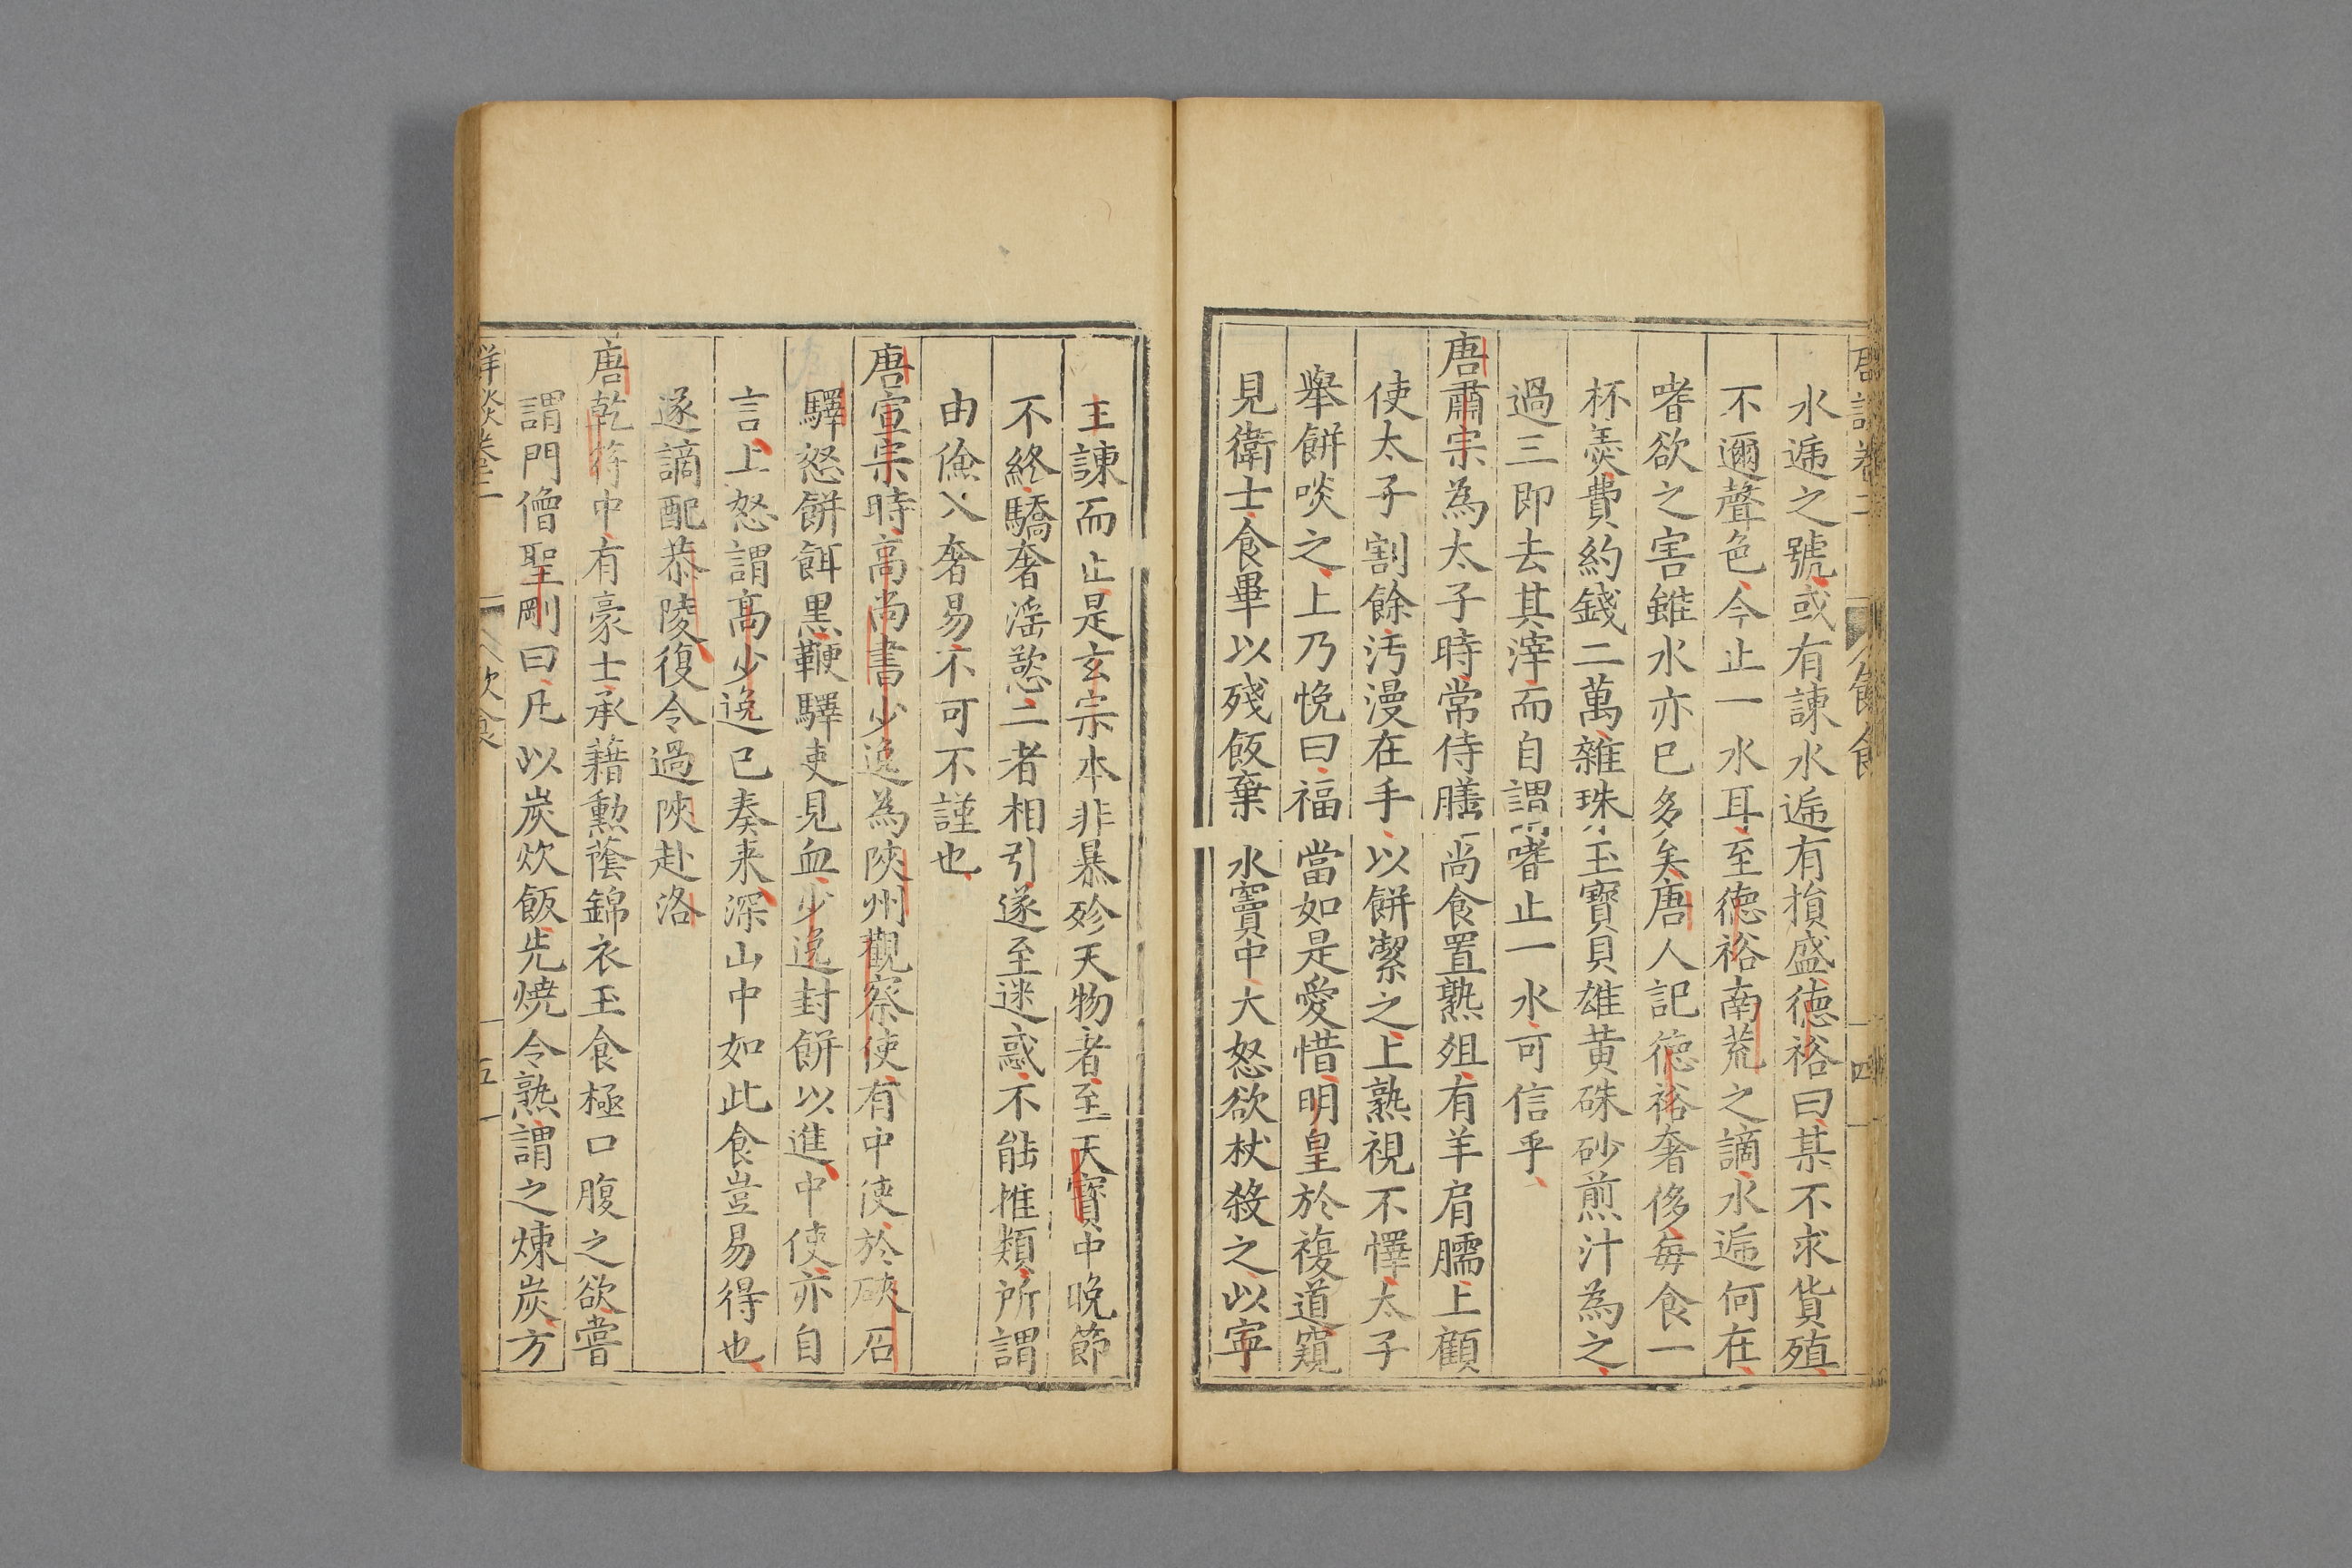 水遞之號或有諫水遞有損盛德裕曰某不求貨殖
不邇聲色今止一水耳至德裕南荒之謫水遞何在
嗜欲之害雖水亦已多矣唐人記德裕奢侈每食一
杯羹費約錢二萬雜珠玉寶貝雄黃硃砂煎汁為之
過三即去其滓而自謂嗜止一水可信乎
唐肅宗為太子時常侍膳尚食置熟俎有羊肩臑上顧
使太子割餘汚漫在手以餅潔之上熟視不懌太子
舉餅啖之上乃悅曰福當如是愛惜明皇於複道窺
見衛士食畢以殘飯棄水竇中大怒欲杖殺之以寧
王諫而止是玄宗本非暴殄天物者至天寶中晚節
不終驕奢滛慾二者相引遂至迷惑不能推類所謂
由儉入奢易不可不謹也
唐宣宗時高尚書少逸為陝州觀察使有中使於硤石
驛怒餅餌黑鞭驛吏見血少逸封餅以進中使亦自
言上怒謂高少逸已奏来深山中如此食豈易得也
遂謫配恭陵復令過陝赴洛
唐乾符中有豪士承藉勲蔭錦衣玉食極口腹之欲嘗
謂門僧聖剛曰凡以炭炊飯先燒令熟謂之煉炭方
卷二 飲食 五